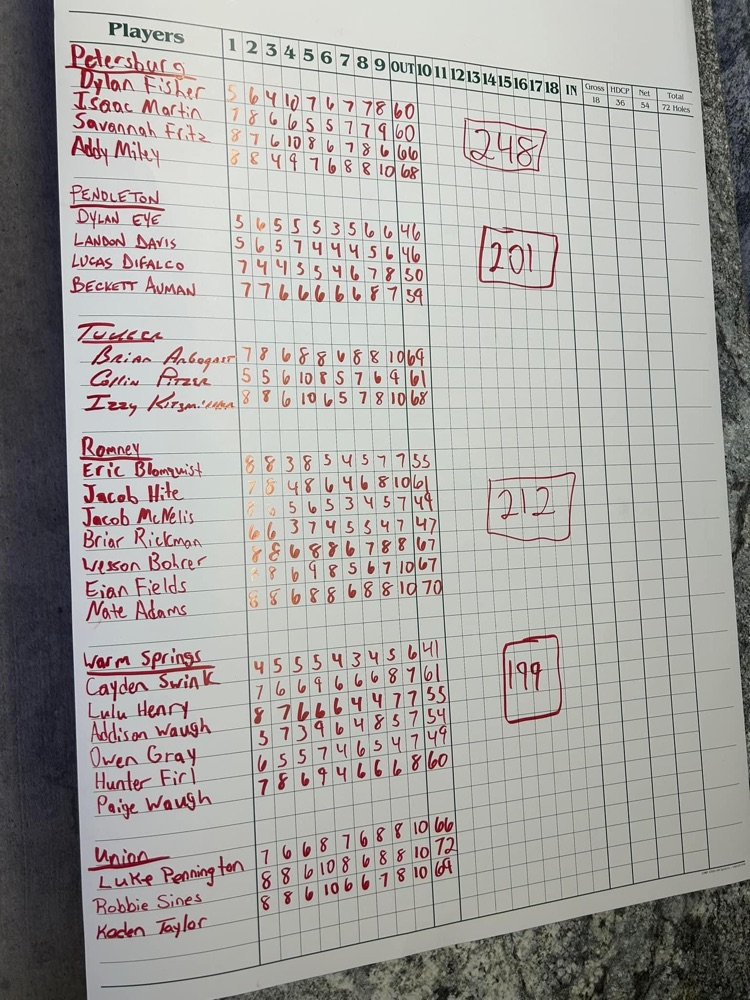 Players 1 2 3 4 5 6 7 8 9 OUT 10 11 12 13 14 15 16 17 18 IN Gross 18 HDCP 36 Net 54 Total 72 Holes
Petersburg
Dylan Fisher 5 6 4 10 7 6 7 7 8 60
Isaac Martin 7 8 6 6 5 5 7 7 9 60
Savannah Fritz 8 7 6 10 8 6 7 8 6 66
Addy Miley 8 8 4 9 7 6 8 8 10 68
248
PENDLETON
DYLAN EYE 5 6 5 5 5 3 5 6 6 46
LANDON DAVIS 5 6 5 7 4 4 4 5 6 46
LUCAS DIFALCO 7 4 4 5 5 4 6 7 8 50
BECKETT AUMAN 7 7 6 6 6 6 6 8 7 59
201
Tucker
Brian Arbogast 7 8 6 8 8 6 8 8 10 69
Collin Pitzer 5 5 6 10 8 5 7 6 9 61
Izzy Kitsmiller 8 8 6 10 6 5 7 8 10 68
Romney
Eric Blomquist 8 8 3 8 5 4 5 7 7 55
Jacob Hite 7 8 4 8 6 4 6 8 10 61
Jacob McNelis 8 6 5 6 5 3 4 5 7 49
Briar Rickman 6 6 3 7 4 5 5 4 7 47
Wesson Bohrer 8 8 6 8 8 6 7 8 8 67
Eian Fields 8 8 6 9 8 5 6 7 10 67
Nate Adams 8 8 6 8 8 6 8 8 10 70
212
Warm Springs
Cayden Swink 4 5 5 5 4 3 4 5 6 41
Lulu Henry 7 6 6 9 6 6 6 8 7 61
Addison Waugh 8 7 6 6 6 4 4 7 7 55
Owen Gray 5 7 3 9 6 4 8 5 7 54
Hunter Firl 6 5 5 7 4 6 5 4 7 49
Paige Waugh 7 8 6 9 4 6 6 6 8 60
199
Union
Luke Pennington 7 6 6 8 7 6 8 8 10 66
Robbie Sines 8 8 6 10 8 6 8 8 10 72
Kaden Taylor 8 8 6 10 6 6 7 8 10 69